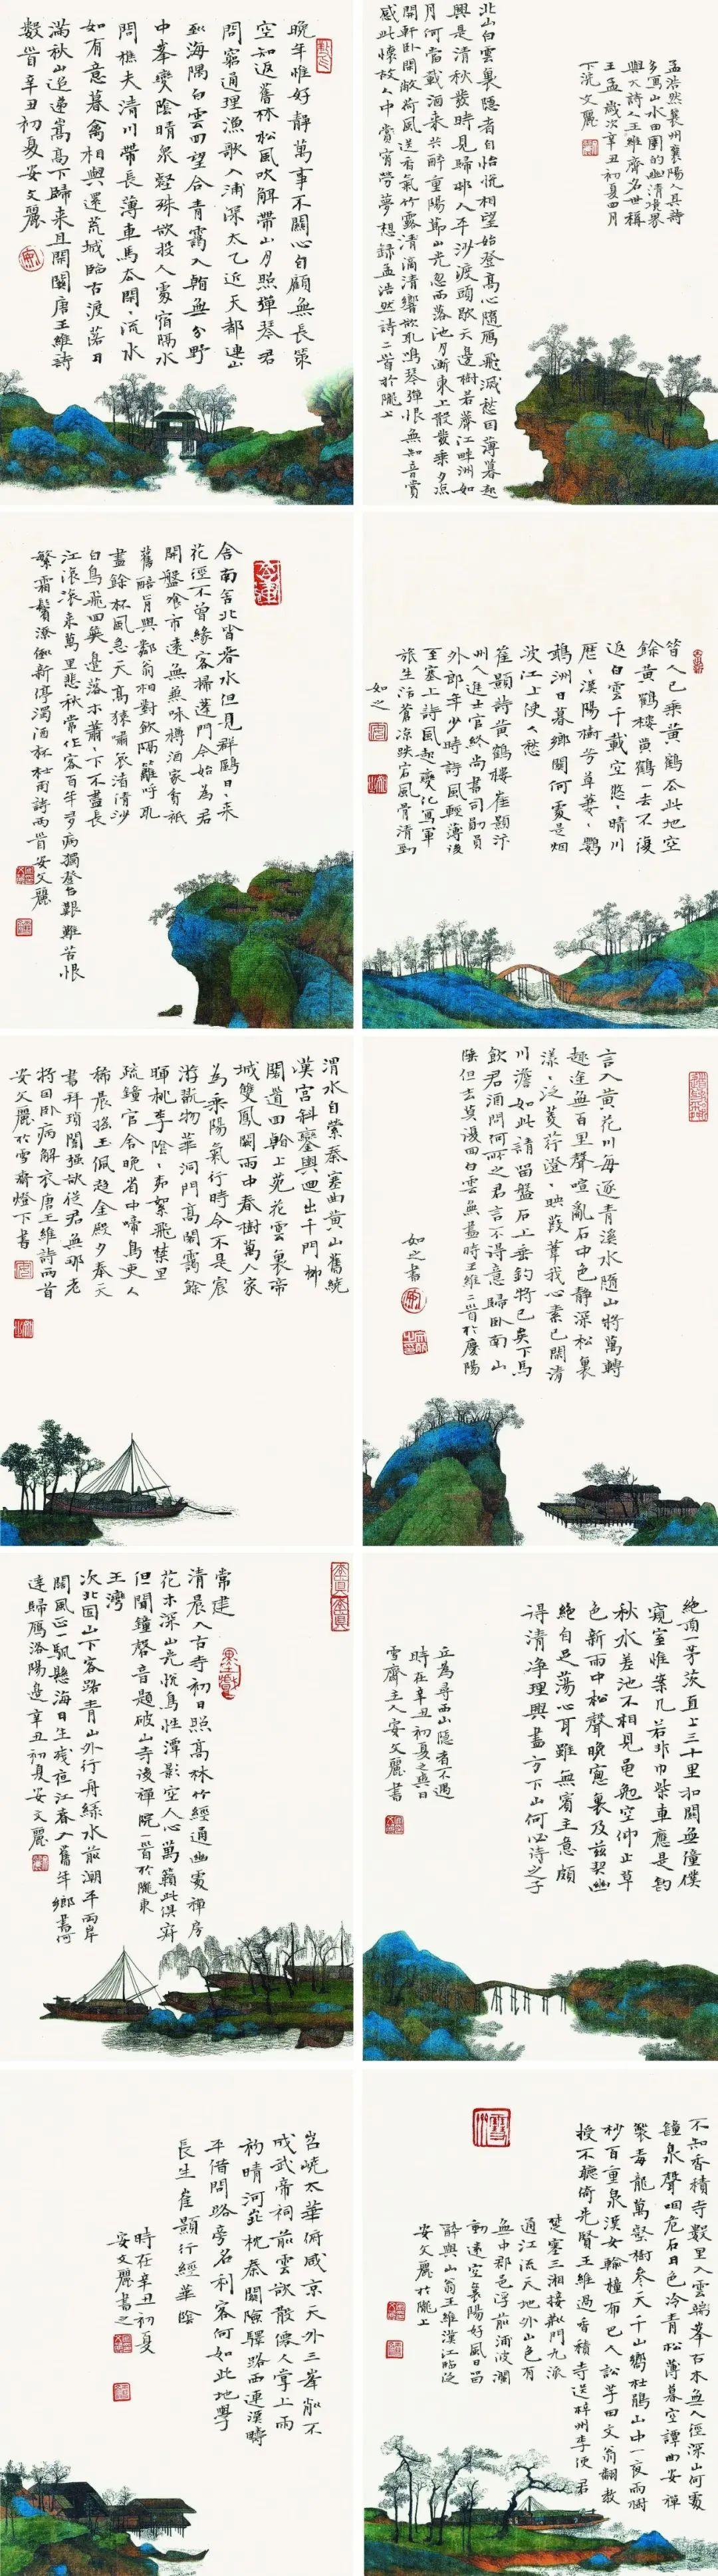 晚年惟好靜萬事不關心自顧無長策
空知返舊林松風吹解帶山月照彈琴君
問窮通理漁歌入浦深太乙近天都連山
到海隅白雲回望合青靄入看無分野
中峯變陰晴衆壑殊欲投人處宿隔水
問樵夫清川帶長薄車馬去閑〻流水
如有意暮禽相與還荒城臨古渡落日
滿秋山迢遞嵩高下歸來且閉關唐王維詩
數首辛丑初夏安文麗
孟浩然襄州襄陽人其詩
多寫山水田園的幽清境界
與大詩人王維齊名世稱
王孟歲次辛丑初夏四月
下浣文麗
北山白雲裏隱者自怡悅相望始登高心隨鴈飛滅愁因薄暮起
興是清秋發時見歸邨人平沙渡頭歇天邊樹若薺江畔洲如
月何當載酒來共醉重陽節山光忽西落池月漸東上散髮乘夕涼
開軒臥閑敞荷風送香氣竹露清滴清響欲取鳴琴彈恨無知音賞
感此懷故人中宵勞夢想錄孟浩然詩二首於隴上
舍南舍北皆春水但見群鷗日〻來
花徑不曾緣客掃蓬門今始為君
開盤飧市遠無兼味樽酒家貧衹
舊醅肯與鄰翁相對飲隔籬呼取
盡餘杯風急天高猿嘯哀渚清沙
白鳥飛回無邊落木蕭〻下不盡長
江滾滾來萬里悲秋常作客百年多病獨登台艱難苦恨
繁霜鬢潦倒新停濁酒杯杜甫詩兩首安文麗
昔人已乘黃鶴去此地空
餘黃鶴樓黃鶴一去不復
返白雲千載空悠〻晴川
歷〻漢陽樹芳草萋〻鸚
鵡洲日暮鄉關何處是烟
波江上使人愁
崔顥詩黃鶴樓崔顥汴
州人進士官終尚書司勛員
外郎年少時詩風輕薄後
至塞上詩風起變化寫軍
旅生活蒼涼跌宕風骨清勁
如之
渭水自縈秦塞曲黃山舊繞
漢宮斜鑾輿迥出千門柳
閣道回看上苑花雲裏帝
城雙鳳闕雨中春樹萬人家
為乘陽氣行時令不是宸
游翫物華洞門高閣靄餘
暉桃李陰〻柳絮飛禁里
疏鐘官舍晚省中啼鳥吏人
稀晨搖玉佩趨金殿夕奉天
書拜瑣闈強欲從君無那老
將因卧病解衣唐王維詩兩首
安文麗於雪齋燈下書
言入黃花川每逐青溪水隨山將萬轉
趣途無百里聲喧亂石中色靜深松裏
漾〻泛菱荇澄〻映葭葦我心素已閑清
川澹如此請留盤石上垂釣將已矣下馬
飲君酒問何所之君言不得意歸臥南山
陲但去莫復問白雲無盡時王維二首於慶陽
如之書
常建
清晨入古寺初日照高林竹經通幽處禪房
花木深山光悅鳥性潭影空人心萬籟此俱寂
但聞鐘磬音題破山寺後禪院一首於隴東
王灣
次北固山下客路青山外行舟綠水前潮平兩岸
闊風正一帆懸海日生殘夜江春入舊年鄉書何
達歸雁洛陽邊辛丑初夏安文麗
絕頂一茅茨直上三十里扣關無僮僕
窺室惟案几若非巾柴車應是釣
秋水差池不相見黽勉空仰止草
色新雨中松聲晚窗裏及茲契幽
絕自足蕩心耳雖無賓主意頗
得清净理興盡方下山何必待之子
丘為尋西山隱者不遇
時在辛丑初夏之興日
雪齋主人安文麗書
岧嶢太華俯咸京天外三峯削不
成武帝祠前雲欲散僊人掌上雨
初晴河山北枕秦關險驛路西連漢畤
平借問路旁名利客何如此地學
長生崔顥行經華陰
時在辛丑初夏
安文麗書之
不知香積寺數里入雲端峯古木無人徑深山何處
鐘泉聲咽危石日色冷青松薄暮空潭曲安禪
製毒龍萬壑樹參天千山響杜鵑山中一夜雨樹
杪百重泉漢女輸橦布巴人訟芋田文翁翻教
授不聽倚先賢王維過香積寺送梓州李使君
楚塞三湘接荊門九派
通江流天地外山色有
無中郡邑浮前浦波瀾
動遠空襄陽好風日留
醉與山翁王維漢江臨泛
安文麗於隴上